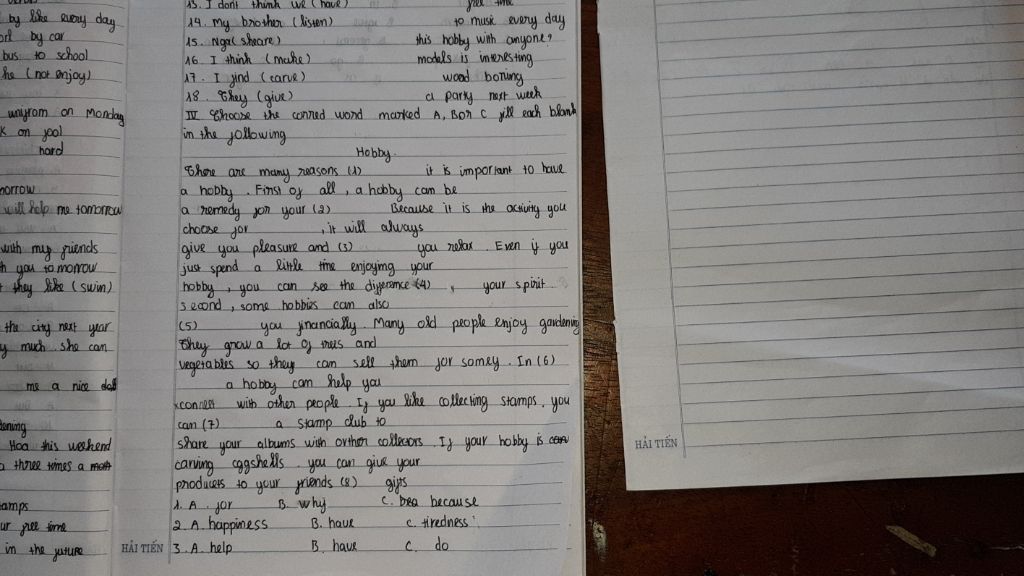 by like every day
by car
bus to school
he (not enjoy)
on Monday
K on
hard
will help me tomorrow
with my friends
you tomorrow
they like (swim)
the city next year
y much. she can
me a nice doll
Hoa this weekend
three times a
in the future
13. I dont think we (have) free time
14. My brother (listen) to music every day
15. Nga (sheare) this hobby with anyone?
16. I think (make) models is interesting
17. I find (carve) wood boring
18. They (give) a party next week
IV Choose the word marked A, B or C fill each blank
in the following
Hobby.
There are many reasons (1) it is important to have
a hobby. First of all, a hobby can be
a remedy for your (2) Because it is the activity you
choose for , it will always
give you pleasure and (3) you relax. Even if you
just spend a little time enjoying your
hobby, you can see the difference (4), your spirit
second, some hobbies can also
(5) you financially. Many old people enjoy gardening
They grow a lot of trees and
vegetables so they can sell them for somey. In (6)
a hobby can help you
connect with other people. If you like collecting stamps, you
can (7) a stamp club to
share your albums with orther collectors. If your hobby is
carving eggshells. you can give your
producets to your friends (8) gifts
1. A. for B. why C. because
2. A. happiness B. have C. tiredness
3. A. help B. have C. do
HẢI TIẾN
HẢI TIẾN